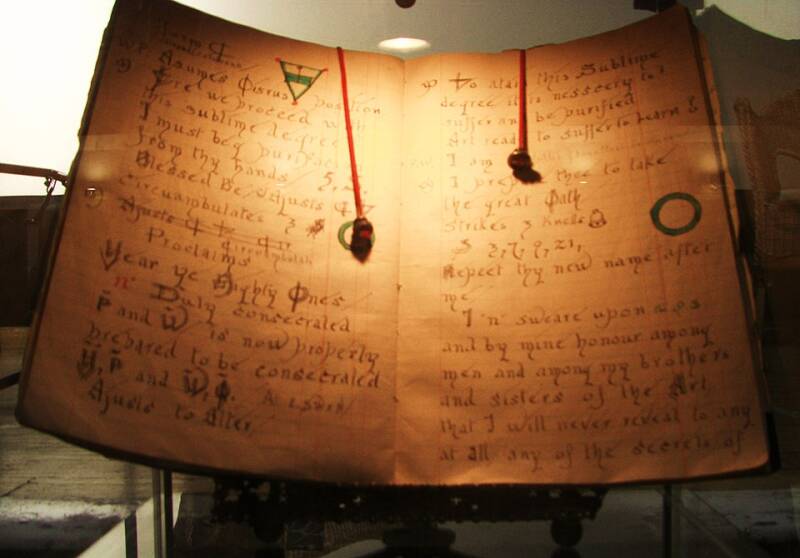 Asumes Osirus position
Erel we proceed with
this sublime degree
I must beg purificat
from thy hands
Blessed Be. Ajusts
Circumbulates 3
Ajusts
Circumbulates
Proclaims
Hear ye Myghty Ones
"n" Duly consecrated
P and W is now properly
prepared to be consecrated
H, P and W, Q.
Ajusts to alter
To atain this Sublime
degree it is nessecry to
suffer and be purified
Art ready to suffer to learn
I am
I prepare thee to take
the great Oath
Strikes 3 Knells
3, 7, 9, 21,
Repect thy new name after
me
I "n" sweare upon
and by mine honour among
men and among my brothers
and sisters of the Art
that I will never reveal to any
at all any of the secrets of